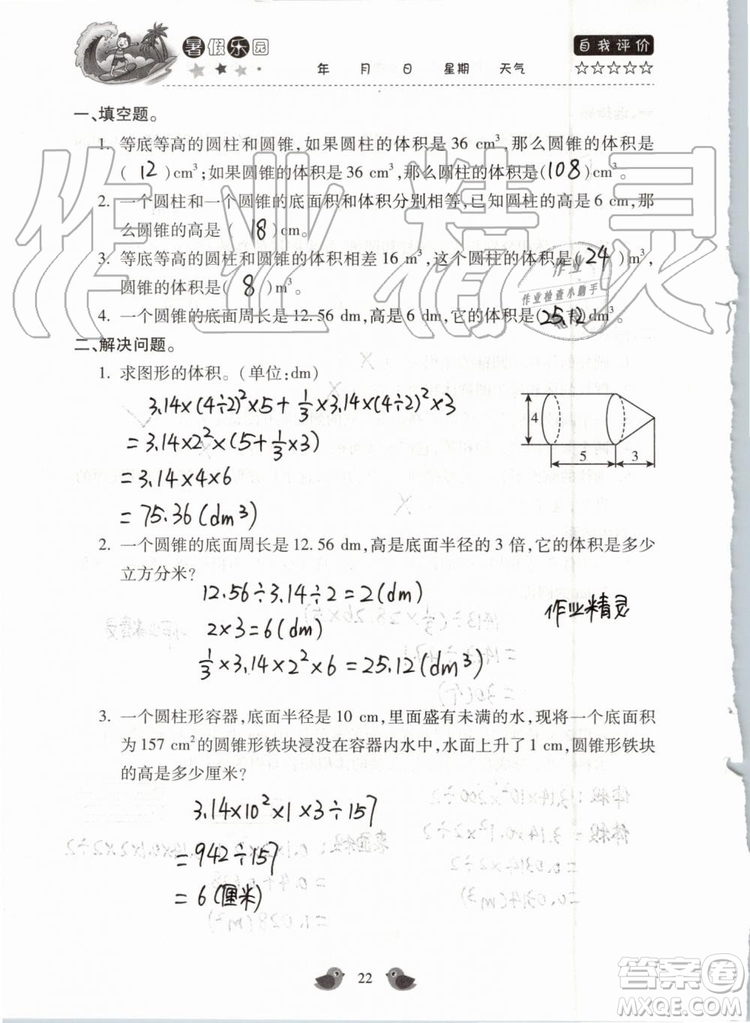 暑假乐园
自我评价
年 月 日 星期 天气
☆☆☆☆☆
一、填空题。
1. 等底等高的圆柱和圆锥,如果圆柱的体积是 36 cm³,那么圆锥的体积是
( 12 )cm³;如果圆锥的体积是 36 cm³,那么圆柱的体积是(108)cm³。
2. 一个圆柱和一个圆锥的底面积和体积分别相等,已知圆柱的高是 6 cm,那
么圆锥的高是( 18 )cm。
3. 等底等高的圆柱和圆锥的体积相差 16 m³,这个圆柱的体积是( 24 )m³,
圆锥的体积是( 8 )m³。
4. 一个圆锥的底面周长是 12.56 dm,高是 6 dm,它的体积是(25.12)dm³。
二、解决问题。
1. 求图形的体积。(单位:dm)
3.14×(4÷2)²×5+⅓×3.14×(4÷2)²×3
=3.14×2²×(5+⅓×3)
=3.14×4×6
=75.36(dm³)
4
5 3
2. 一个圆锥的底面周长是 12.56 dm,高是底面半径的 3 倍,它的体积是多少
立方分米?
12.56÷3.14÷2=2(dm)
2×3=6(dm)
⅓×3.14×2²×6=25.12(dm³)
作业精灵
3. 一个圆柱形容器,底面半径是 10 cm,里面盛有未满的水,现将一个底面积
为 157 cm²的圆锥形铁块浸没在容器内水中,水面上升了 1 cm,圆锥形铁块
的高是多少厘米?
3.14×10²×1×3÷157
=942÷157
=6(厘米)
22
作业精灵
作业
作业检查小助手
答案圈
MXQE.COM